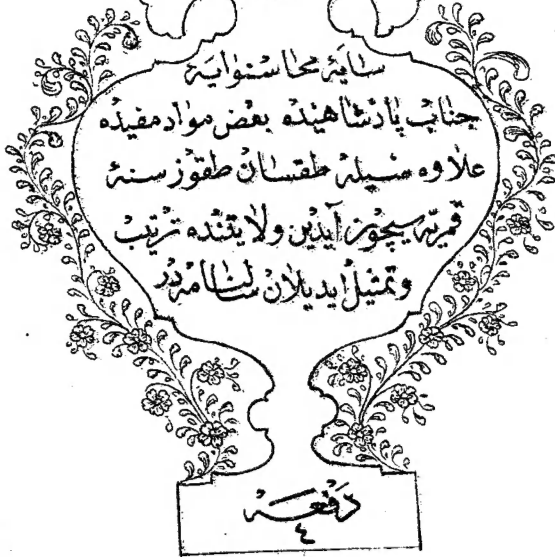 سايۀ محاسنوايۀ
جناب پادشاهيده بعض مواد مفيده
علاوه سيله طقسان طقوز سنۀ
قمريه سيچون آيدين ولايتنده ترتيب
وتمثيل ايديلان سالنامه در
دفعه
٤